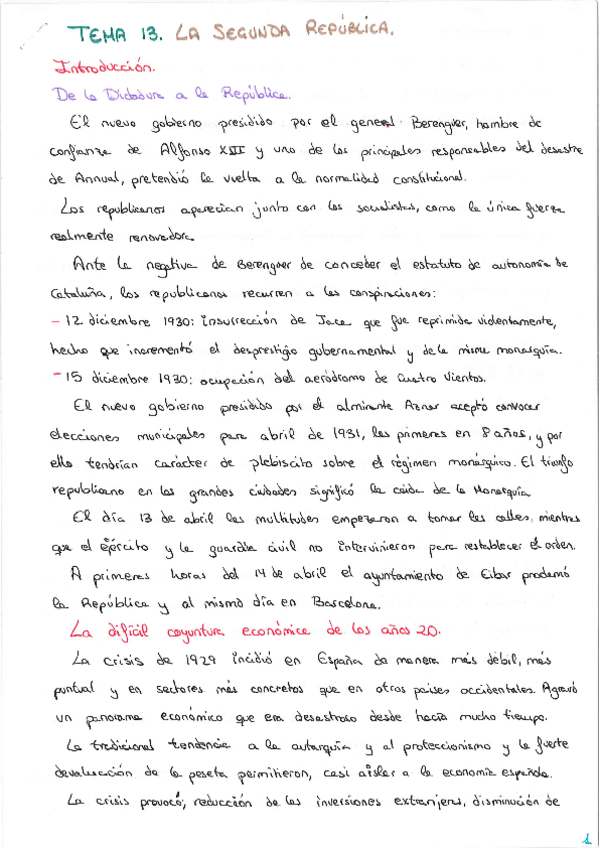 TEMA 13. LA SEGUNDA REPÚBLICA.
Introducción.
De la Dictadura a la República.
El nuevo gobierno presidido por el general Berenguer, hombre de
confianza de Alfonso XIII y uno de los principales responsables del desastre
de Annual, pretendió la vuelta a la normalidad constitucional.
Los republicanos aparecían junto con los socialistas, como la única fuerza
realmente renovadora.
Ante la negativa de Berenguer de conceder el estatuto de autonomía de
Cataluña, los republicanos recurren a las conspiraciones:
- 12 diciembre 1930: insurrección de Jaca que fue reprimida violentamente,
hecho que incrementó el desprestigio gubernamental y de la misma monarquía.
- 15 diciembre 1930: ocupación del aeródromo de Cuatro Vientos.
El nuevo gobierno presidido por el almirante Aznar aceptó convocar
elecciones municipales para abril de 1931, las primeras en 8 años, y por
ello tendrían carácter de plebiscito sobre el régimen monárquico. El triunfo
republicano en las grandes ciudades significó la caída de la Monarquía
El día 13 de abril las multitudes empezaron a tomar las calles, mientras
que el ejército y la guardia civil no intervinieron para restablecer el orden.
A primeras horas del 14 de abril el ayuntamiento de Eibar proclamó
la República y al mismo día en Barcelona.
La difícil coyuntura económica de los años 20.
La crisis de 1929 incidió en España de manera más débil, más
puntual y en sectores más concretos que en otros países occidentales. Agravó
un panorama económico que era desastroso desde hacía mucho tiempo.
La tradicional tendencia a la autarquía y al proteccionismo y la fuerte
devaluación de la peseta permitieron, casi aisler a la economía española.
La crisis provocó, reducción de las inversiones extranjeras, disminución de
1